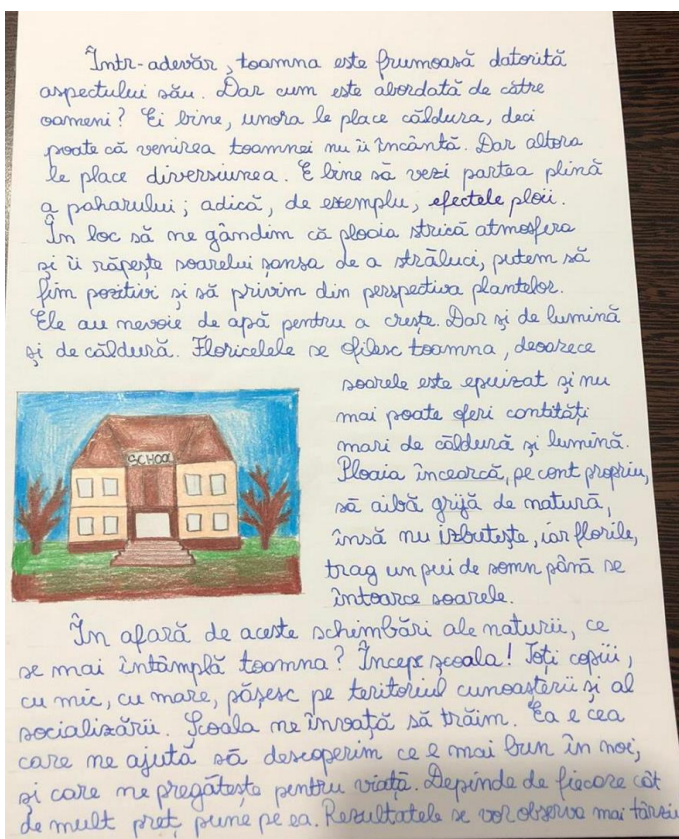 Într-adevăr, toamna este frumoasă datorită
aspectului său. Dar cum este abordată de către
oameni? Ei bine, unora le place căldura, deci
poate că venirea toamnei nu îi încântă. Dar altora
le place diversiunea. E bine să vezi partea plină
a paharului; adică, de exemplu, efectele ploii.
În loc să ne gândim că ploaia strică atmosfera
și îi răpește soarelui șansa de a străluci, putem să
fim pozitivi și să privim din perspectiva plantelor.
Ele au nevoie de apă pentru a crește. Dar și de lumină
și de căldură. Floricelele se ofilesc toamna, deoarece
soarele este epuizat și nu
mai poate oferi cantități
mari de căldură și lumină.
Ploaia încearcă, pe cont propriu,
să aibă grijă de natură,
însă nu izbutește, iar florile,
trag un pui de somn până se
întoarce soarele.
SCHOOL
În afară de aceste schimbări ale naturii, ce
se mai întâmplă toamna? Începe școala! Toți copiii,
cu mic, cu mare, pășesc pe teritoriul cunoașterii și al
socializării. Școala ne învață să trăim. Ea e cea
care ne ajută să descoperim ce e mai bun în noi,
și care ne pregătește pentru viață. Depinde de fiecare cât
de mult preț pune pe ea. Rezultatele se vor observa mai târziu